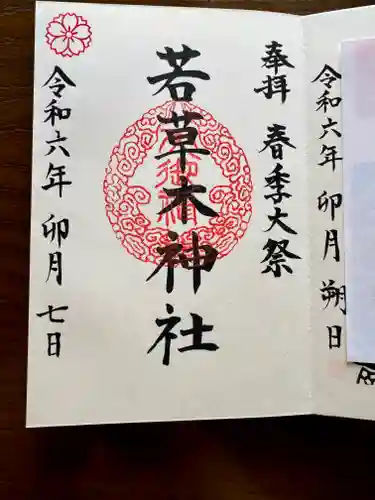 奉拝 春季大祭
若草木神社
令和六年 卯月 七日
令和六年 卯月 朔日